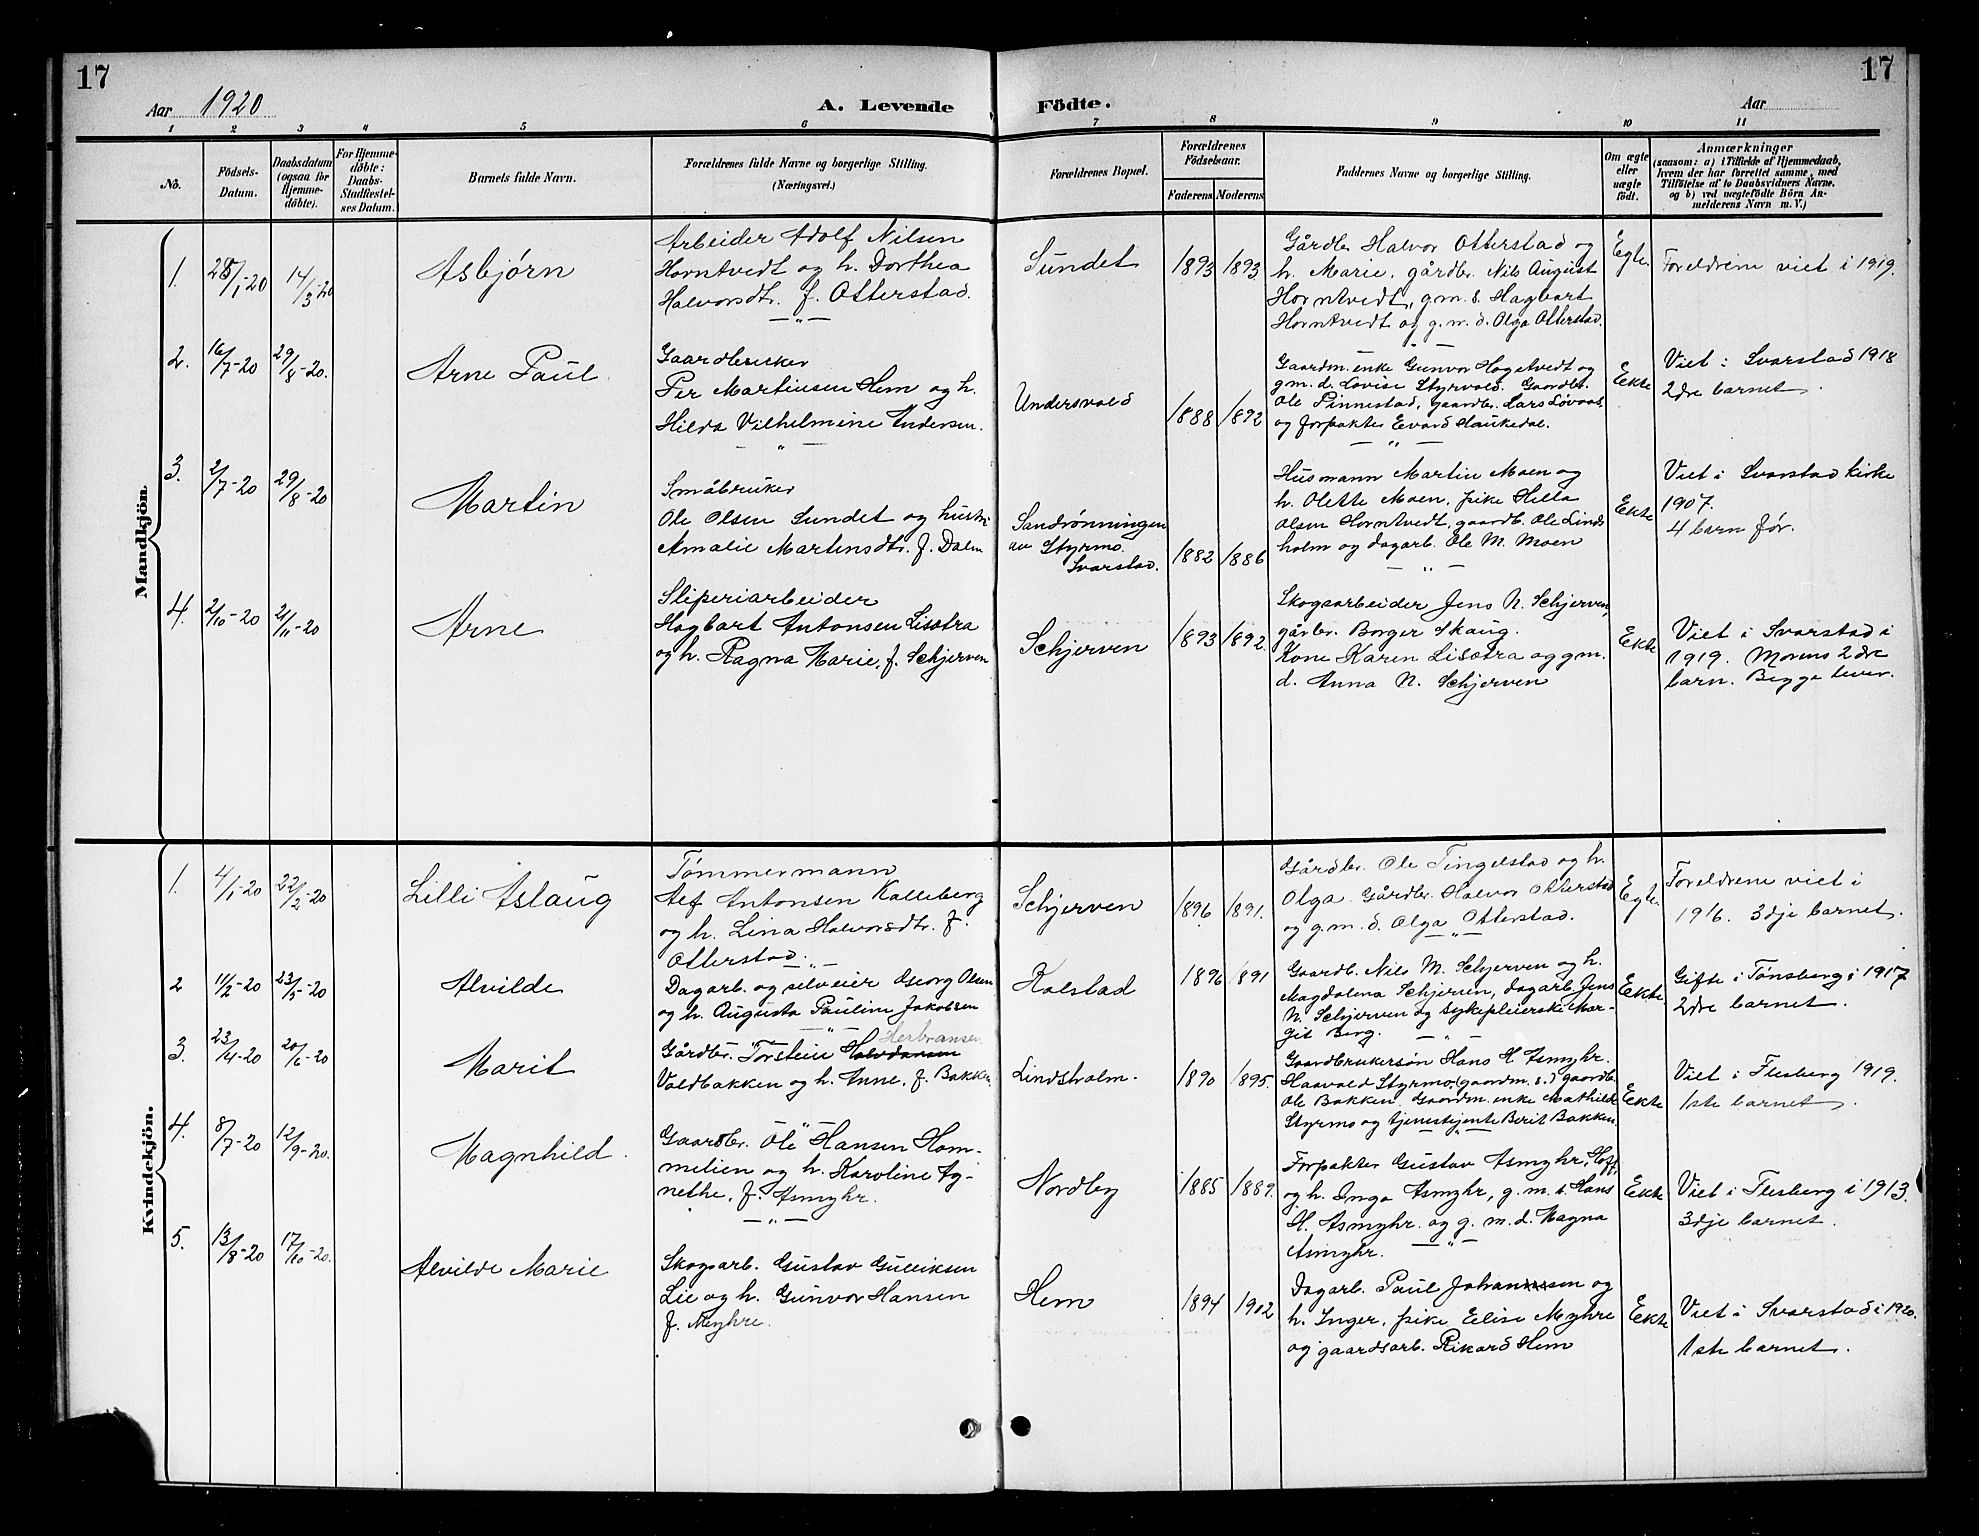 17
17
Aar 1920
A. Levende
Födte.
Aar
1 2 3 4 5 6 7 8 9 10 11
No.
Födsels-
Datum.
Daabsdatum
(ogsaa for
Hjemme-
döbte).
For Hjemme-
döbte:
Daabs-
Stadfæstel-
ses Datum.
Barnets fulde Navn.
Forældrenes fulde Navne og borgerlige Stilling.
(Næringsvei.)
Forældrenes Bopæl.
Forældrenes
Födselsaar.
Faderens Moderens
Faddernes Navne og borgerlige Stilling.
Om ægte
eller
uægte
födt.
Anmærkninger
(saasom: a) i Tilfælde af Hjemmedaab,
hvem der har forrettet samme, med
Tilföielse af to Daabsvidners Navne.
og b) ved uægtefödte Börn An-
melderens Navn m. V.)
Mandkjön
1. 28/1-20 14/3-20
Asbjørn
Arbeider Adolf Nilsen
Horntvedt og h. Dorthea
Halvorsdtr. f. Otterstad.
Sundet
1893 1893
Gårdbr Halvor Otterstad og
h. Marie, gårdbr. Nils August
Horntvedt, g.m.s. Hagbart
Horntvedt og g.m.d. Olga Otterstad.
Egte.
Foreldrene viet i 1919.
2. 16/7-20 29/8-20.
Arne Paul
Gaardbruker
Per Martinsen Hem og h.
Hilda Vilhelmine Andersen.
Undersvold
1888 1892
Gaardm. enke Gunvor Hogetvedt og
g m. d. Lovise Styrvold. Gaardbr.
Ole Pinnestad, gaardbr. Lars Løvaas,
og forpakter Evard Haukedal.
Ekte
Viet i Svarstad 1918
2dre barnet.
3. 2/7-20 29/8-20
Martin
Småbruker
Ole Olsen Sundet og hustr.
Amalie Martinsdtr. f. Dalm
Sandrønningen
av Styrmo.
Svarstad.
1882 1886
Husmann Martin Moen og
h. Olette Moen, pike Hella
Olsen Horntvedt, gaardb. Ole Linds
holm og dagarb. Ole M. Moen
Ekte
Viet i Svarstad kirke
1907.
4 barn før.
4. 2/10-20 21/11-20
Arne
Sliperiarbeider
Hagbart Antonsen Lisætra
og h. Ragna Marie, f. Schjerven
Schjerven
1893 1892.
Skogsarbeider Jens N. Schjerven,
gårbr. Borger Skaug.
Kone Karen Lisætra og g m.
d. Anna N. Schjerven
Ekte
Viet i Svarstad i
1919. Morens 2dre
barn. Begge lever.
Kvindekjön.
1. 4/1-20 22/2-20
Lilli Aslaug
Tømmermann
Alf Antonsen Kalleberg
og h. Lina Halvorsdtr. f.
Otterstad.
Schjerven
1896 1891.
Gårdbr. Ole Tingelstad og h.
Olga. Gårdbr. Halvor Otterstad
og g.m.d. Olga Otterstad.
Egte.
Foreldrene viet i
1916. 3dje barnet.
2 11/2-20 23/5-20
Alvilde
Dagarb. og selveier Georg Olsen
og h. Augusta Pauline Jakobsen
Kolstad
1896 1891
Gaardb. Nils M. Schjerven og h.
Magdalena Schjerven, dagarb. Jens
N. Schjerven og sykepleierske Mar-
git Berg.
Ekte
Gifte i Tønsberg i 1917
2dre barnet.
3. 23/4-20 20/6-20
Marit
Herbransen
Gårdbr. Torstein Halvdansen
Voldbakken og h. Anne, f. Bakken
Lindsholm.
1890 1895.
Gaardbrukersøn Hans H Asmyhr.
Haavald Styrmo (gaardm. s.) gaardb.
Ole Bakken. Gaardm. enke Mathilde
Styrmo og tjenestejente Berit Bakken.
Ekte
Viet i Flesberg 1919.
1ste barnet.
4. 8/7-20 12/9-20.
Magnhild.
Gaardbr. Ole Hansen Hom-
melien og h. Karoline Ag-
nethe, f. Asmyhr.
Nordby
1885 1889.
Forpakter Gustav Asmyhr, Hoff,
og h. Inga Asmyhr, g. m. s. Hans
H. Asmyhr og g. m. d. Magna
Asmyhr.
Ekte
Viet i Flesberg i 1913.
3dje barnet.
5. 13/8-20 17/10-20.
Alvilde Marie
Skogsarb. Gustav Gulliksen
Lie og h. Gunvor Hansen
f. Meyhre.
Hem
1894 1902
Dagarb. Paul Johannssen og
h. Inger, pike Elise Meyhre
og gaardsarb. Rikard Hem
Ekte
Viet i Svarstad i 1920.
1ste barnet.